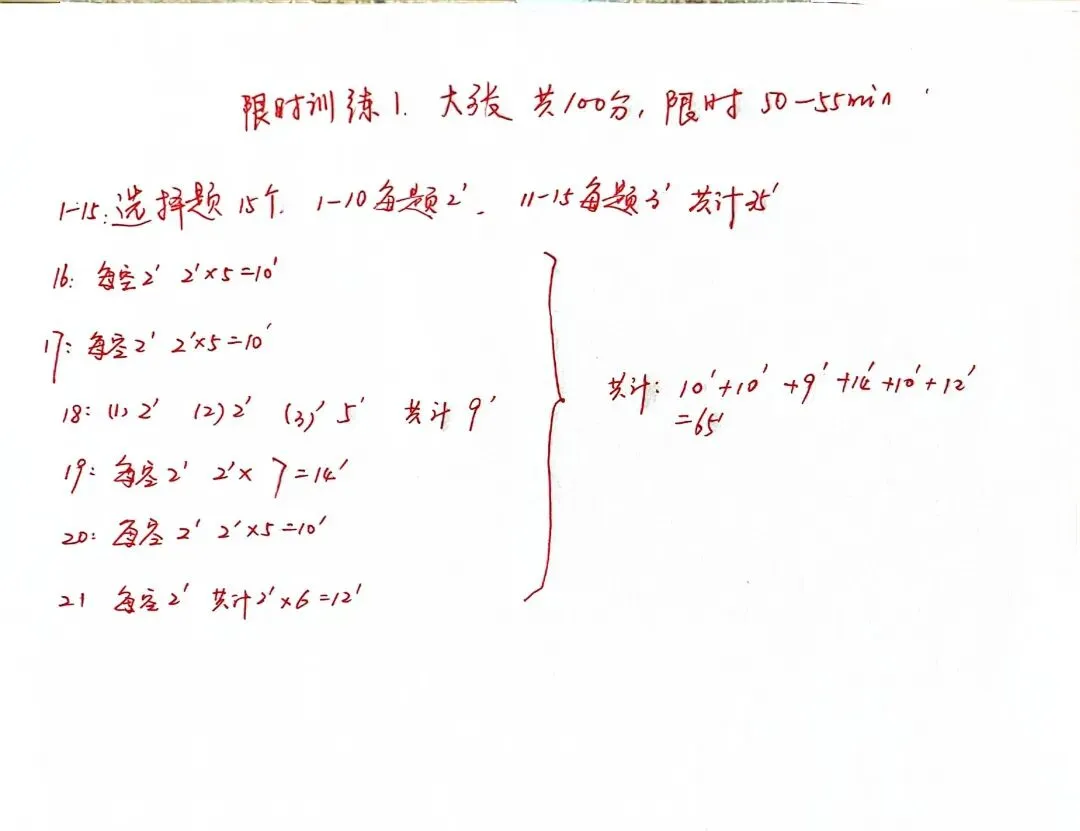 限时训练1. 大张 共100分, 限时 50-55min
1-15: 选择题 15个. 1-10每题2'. 11-15每题3' 共计35'
16: 每空2' 2'×5=10'
17: 每空2' 2'×5=10'
18: (1) 2' (2) 2' (3)' 5' 共计 9'
19: 每空2' 2'×7=14'
20: 每空2' 2'×5=10'
21 每空2' 共计2'×6=12'
共计: 10'+10'+9'+14'+10'+12'
=65'